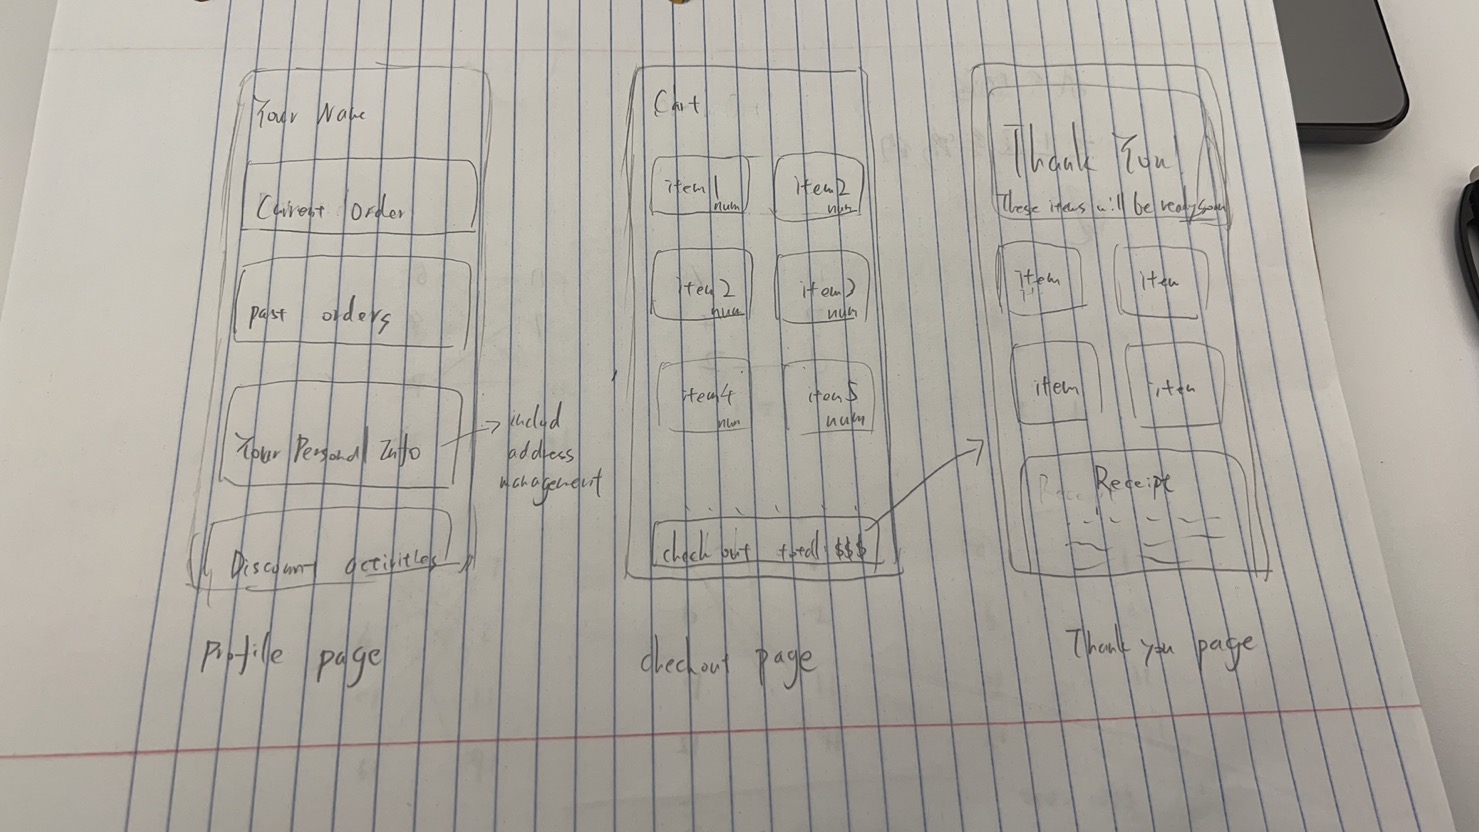 Your Name
Current Order
past orders
Your Personal Info
includ
address
management
Discount activities
Profile page
Cart
item1
num
item2
num
item2
num
item3
num
item4
num
item5
num
check out total $$$
checkout page
Thank You!
These items will be ready soon
item
item
item
item
Receipt
Thank you page